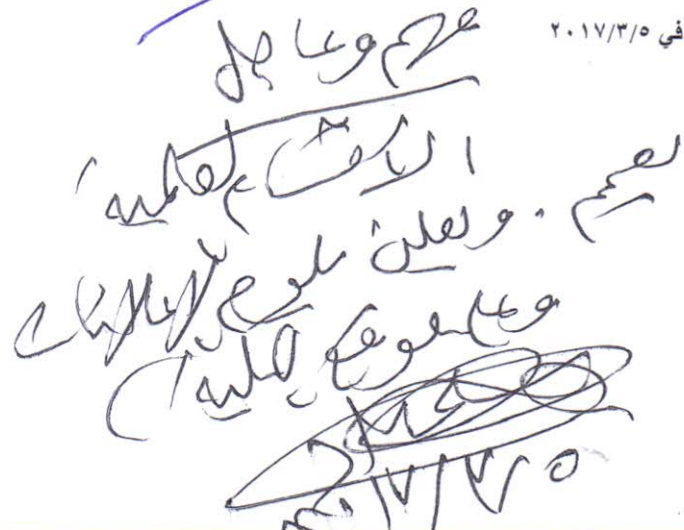 في ٢٠١٧/٣/٥
مهم وعاجل
الاقسام العلمية
تعميم . وتعلن بلوحة الاعلانات
وعلى موقع الكلية
٢٠١٧/٣/٥